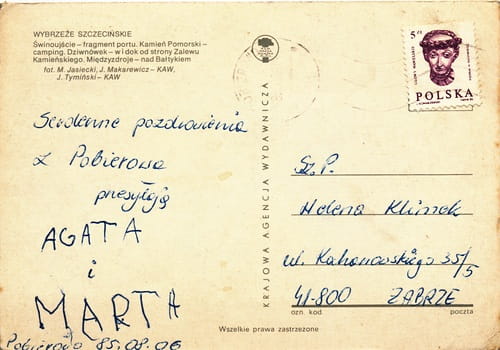 WYBRZEŻE SZCZECIŃSKIE
Świnoujście – fragment portu. Kamień Pomorski –
camping. Dziwnówek – widok od strony Zalewu
Kamieńskiego. Międzyzdroje – nad Bałtykiem
fot. M. Jasiecki, J. Makarewicz – KAW,
J. Tymiński – KAW
Serdeczne pozdrowienia
z Pobierowa
przesyłają
AGATA
i
MARTA
Pobierowo 85.08.06
KRAJOWA AGENCJA WYDAWNICZA
5 zł
POLSKA
Sz.P.
Helena Klimek
ul. Kochanowskiego 35/5
41-800 ZABRZE
ozn. kod poczta
Wszelkie prawa zastrzeżone